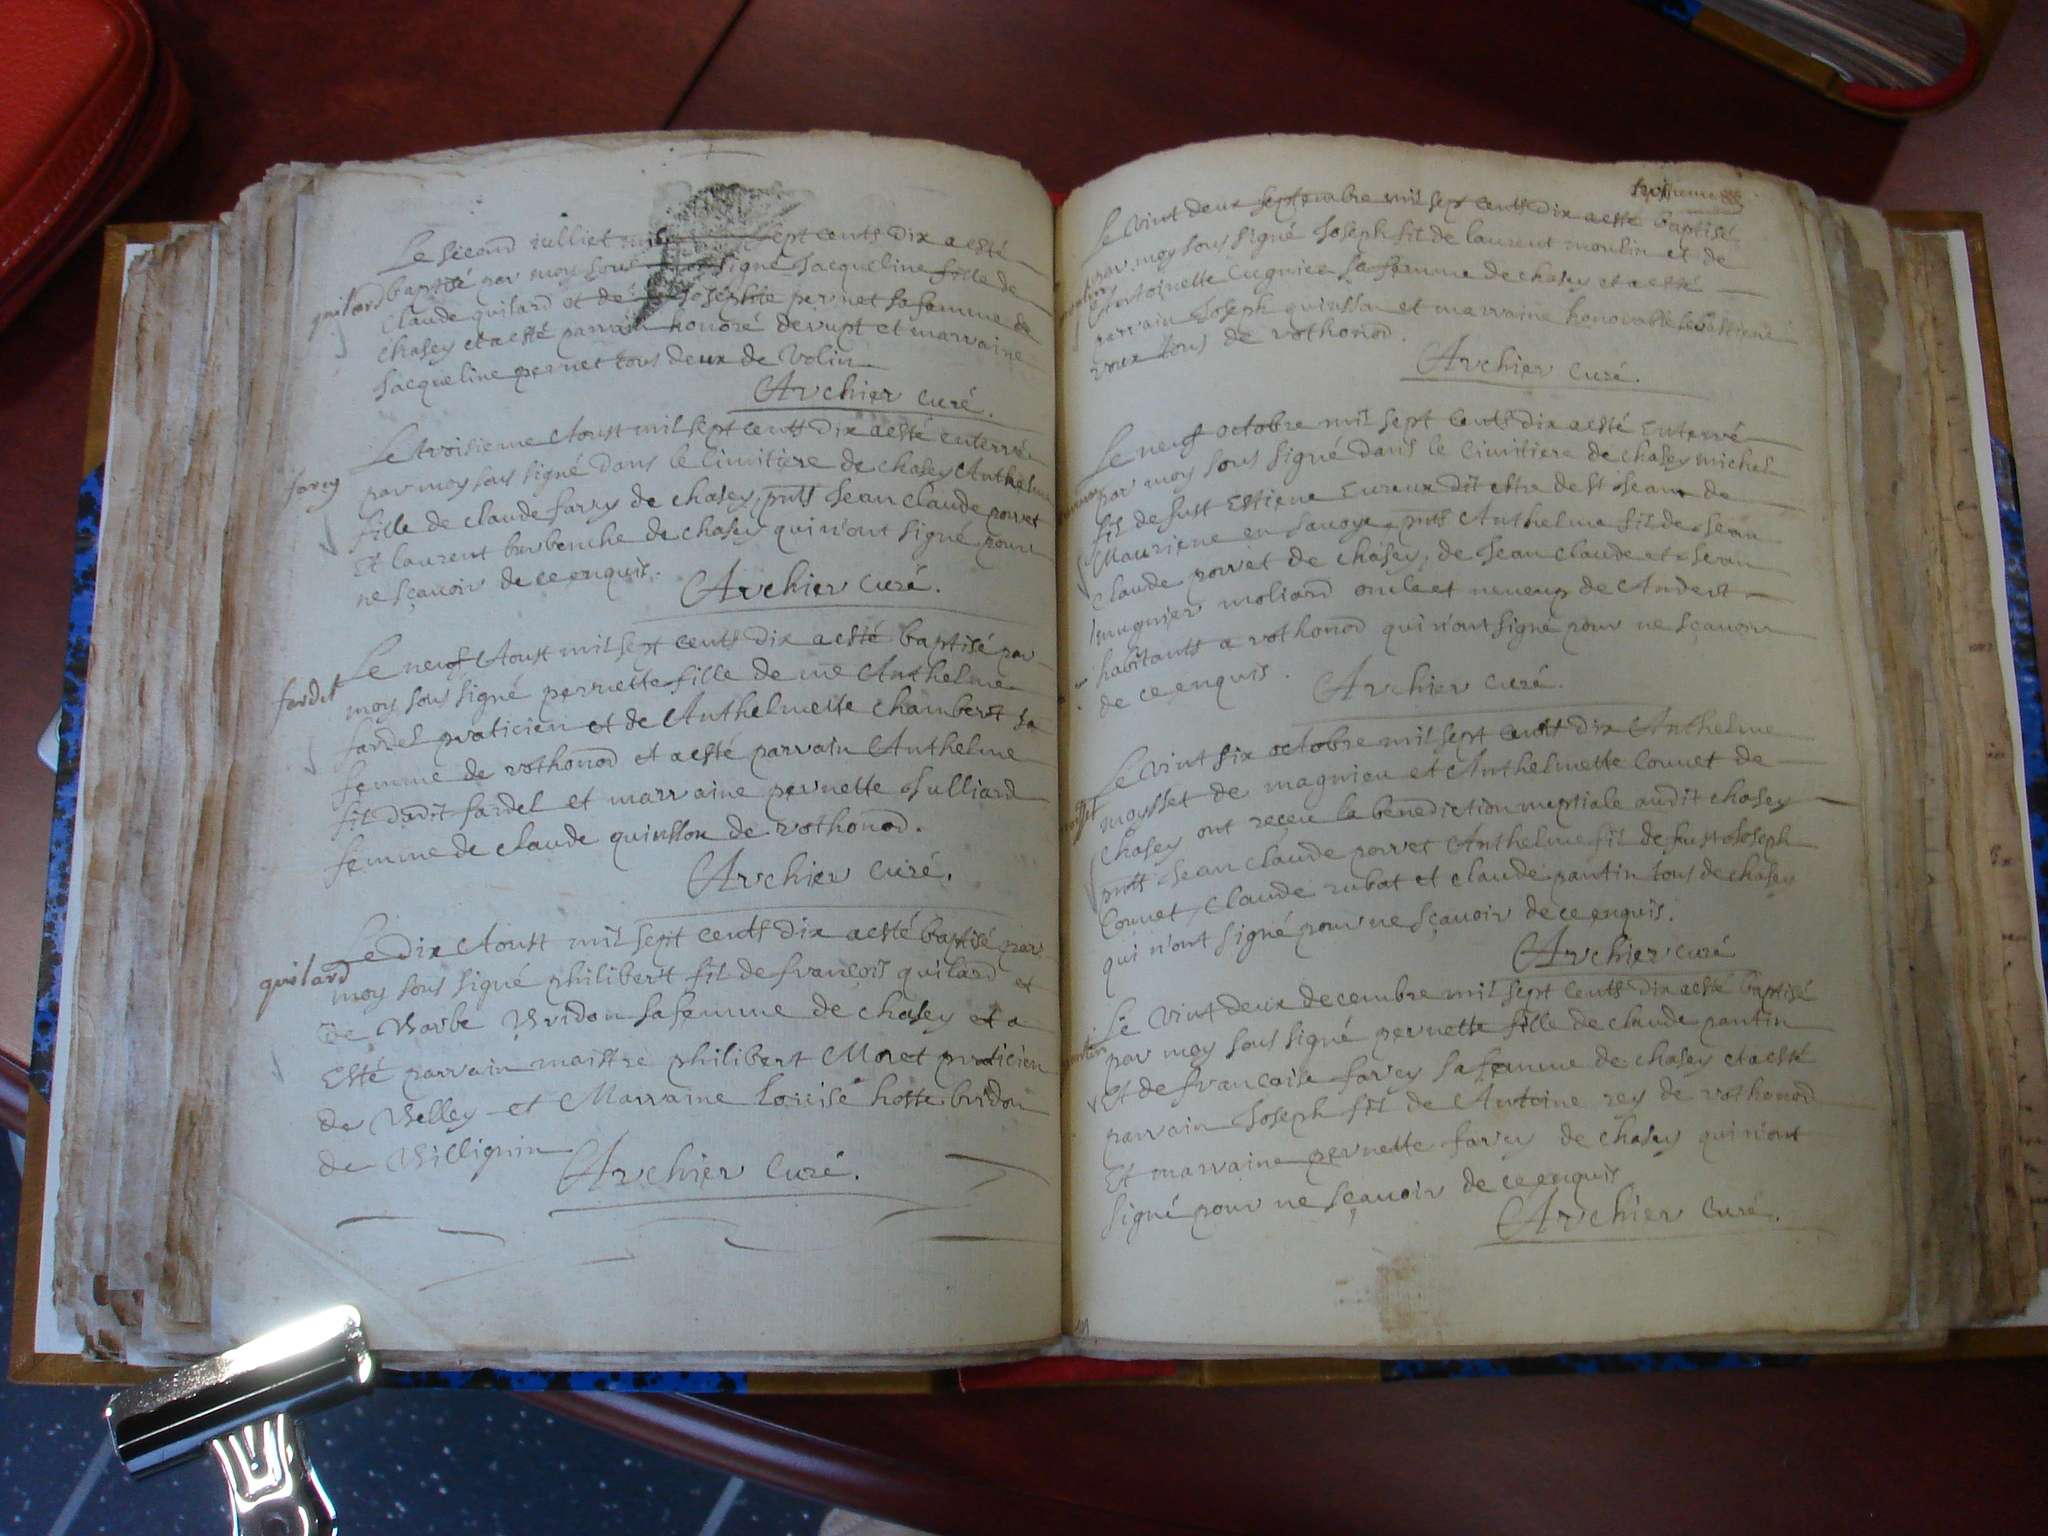 Le second julliet mil sept cents dix a esté
guilard baptisé par moy sous signé Jacqueline fille de
Claude guilard et de Josephte pernet sa femme de
chasey et a esté parrain honoré derupt et marraine
Jacqueline pernet tous deux de Volin
Archier Curé.
Le troisieme Aoust mil sept cents dix a esté enterré
farcy
par moy sous signé dans le cimitiere de chasey Anthelme
fille de claude farcy de chasey, pnts Jean claude povvet
Et laurent barbenche de chasey qui n'ont signé pour
ne sçavoir de ce enquis.
Archier Curé.
Le neuf Aoust mil sept cents dix a esté baptisé par
fardel
moy sous signé pernette fille de me Anthelme
fardel praticien et de Anthelmette chambert sa
femme de rothonod et a esté parrain Anthelme
fil dudit fardel et marraine pernette Julliard
femme de claude quinsson de rothonod.
Archier Curé.
Le dix Aoust mil sept cents dix a esté baptisé par
guilard
moy sous signé philibert fil de françois guilard et
de Barbe Bridon sa femme de chasey et a
Esté parrain maistre philibert Moret praticien
de Belley et Marraine Louise hoste bridon
de Billignin
Archier Curé.
troisieme
Le vint deux septembre mil sept cents dix a esté baptisé
par moy sous signé Joseph fil de laurent moulin et de
Antoinette Cugnier sa femme de chasey et a esté
parrain Joseph quinsson et marraine honorable Sebastiene
roux tous de rothonod.
Archier Curé.
Le neuf octobre mil sept cents dix a esté Enterré
par moy sous signé dans le cimitiere de chasey michel
fil de fust Estiene Eureux dit estre de st Jean de
Mauriene en savoye, pnts Anthelme fil de Jean
Claude povvet de chasey, de Jean claude et Jean
moliard oncle et neveux de Andert
habitants a rothonod qui n'ont signé pour ne sçavoir
de ce enquis.
Archier Curé.
Le vint six octobre mil sept cents dix Anthelme
moysset de magnieu et Anthelmette Convet de
chasey ont receu la benediction nuptiale audit chasey
pnts Jean claude povvet Anthelme fil de fust Joseph
Convet, Claude rubat et claude pantin tous de chasey
qui n'ont signé pour ne sçavoir de ce enquis.
Archier curé
Le vint deux decembre mil sept cents dix a esté baptisé
pantin
par moy sous signé pernette fille de claude pantin
et de francoise farcy sa femme de chasey et a esté
parrain Joseph fil de Antoine rey de rothonod
Et marraine pernette farcy de chasey qui n'ont
signé pour ne sçavoir de ce enquis
Archier Curé.